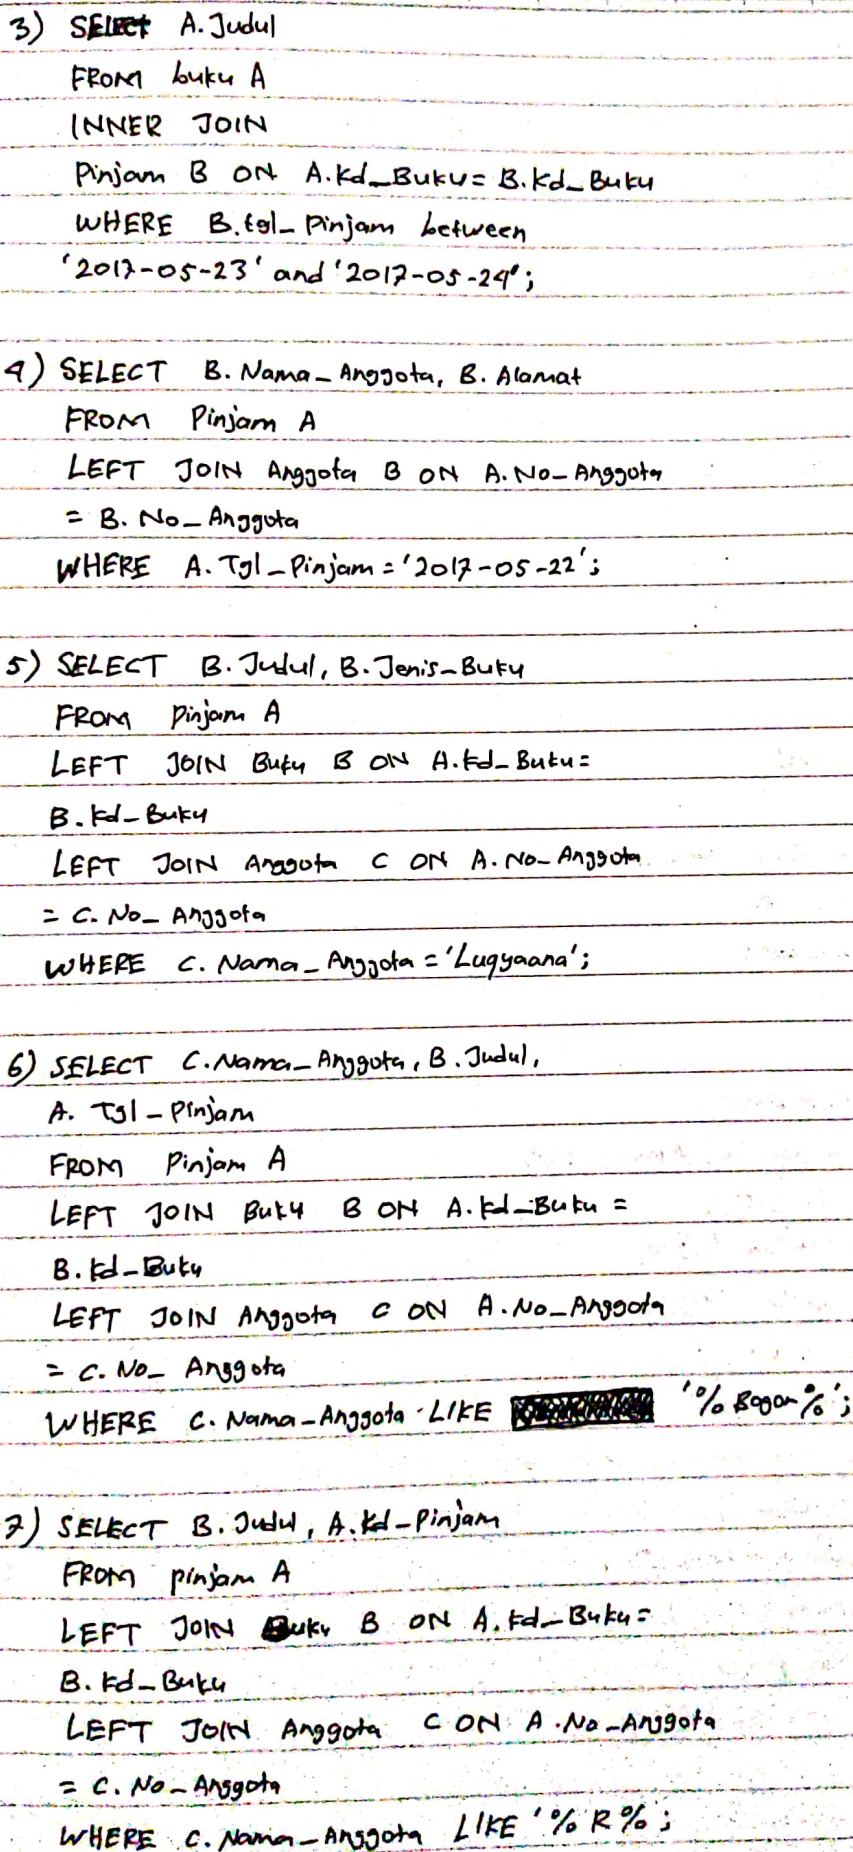 3) SELECT A. Judul
FROM buku A
INNER JOIN
Pinjam B ON A.Kd_Buku = B.Kd_Buku
WHERE B.tgl_Pinjam between
'2017-05-23' and '2017-05-24';
4) SELECT B. Nama_Anggota, B. Alamat
FROM Pinjam A
LEFT JOIN Anggota B ON A. No_Anggota
= B. No_Anggota
WHERE A. Tgl_Pinjam = '2017-05-22';
5) SELECT B. Judul, B. Jenis_Buku
FROM Pinjam A
LEFT JOIN Buku B ON A.Kd_Buku =
B. Kd_Buku
LEFT JOIN Anggota C ON A. No_Anggota
= C. No_Anggota
WHERE C. Nama_Anggota = 'Luqyaana';
6) SELECT C.Nama_Anggota, B. Judul,
A. Tgl_Pinjam
FROM Pinjam A
LEFT JOIN Buku B ON A.Kd_Buku =
B. Kd_Buku
LEFT JOIN Anggota C ON A.No_Anggota
= C. No_Anggota
WHERE C. Nama_Anggota LIKE '% Bogor %';
7) SELECT B. Judul, A.Kd_Pinjam
FROM pinjam A
LEFT JOIN Buku B ON A. Kd_Buku =
B. Kd_Buku
LEFT JOIN Anggota C ON A.No_Anggota
= C. No_Anggota
WHERE C. Nama_Anggota LIKE '% R %;